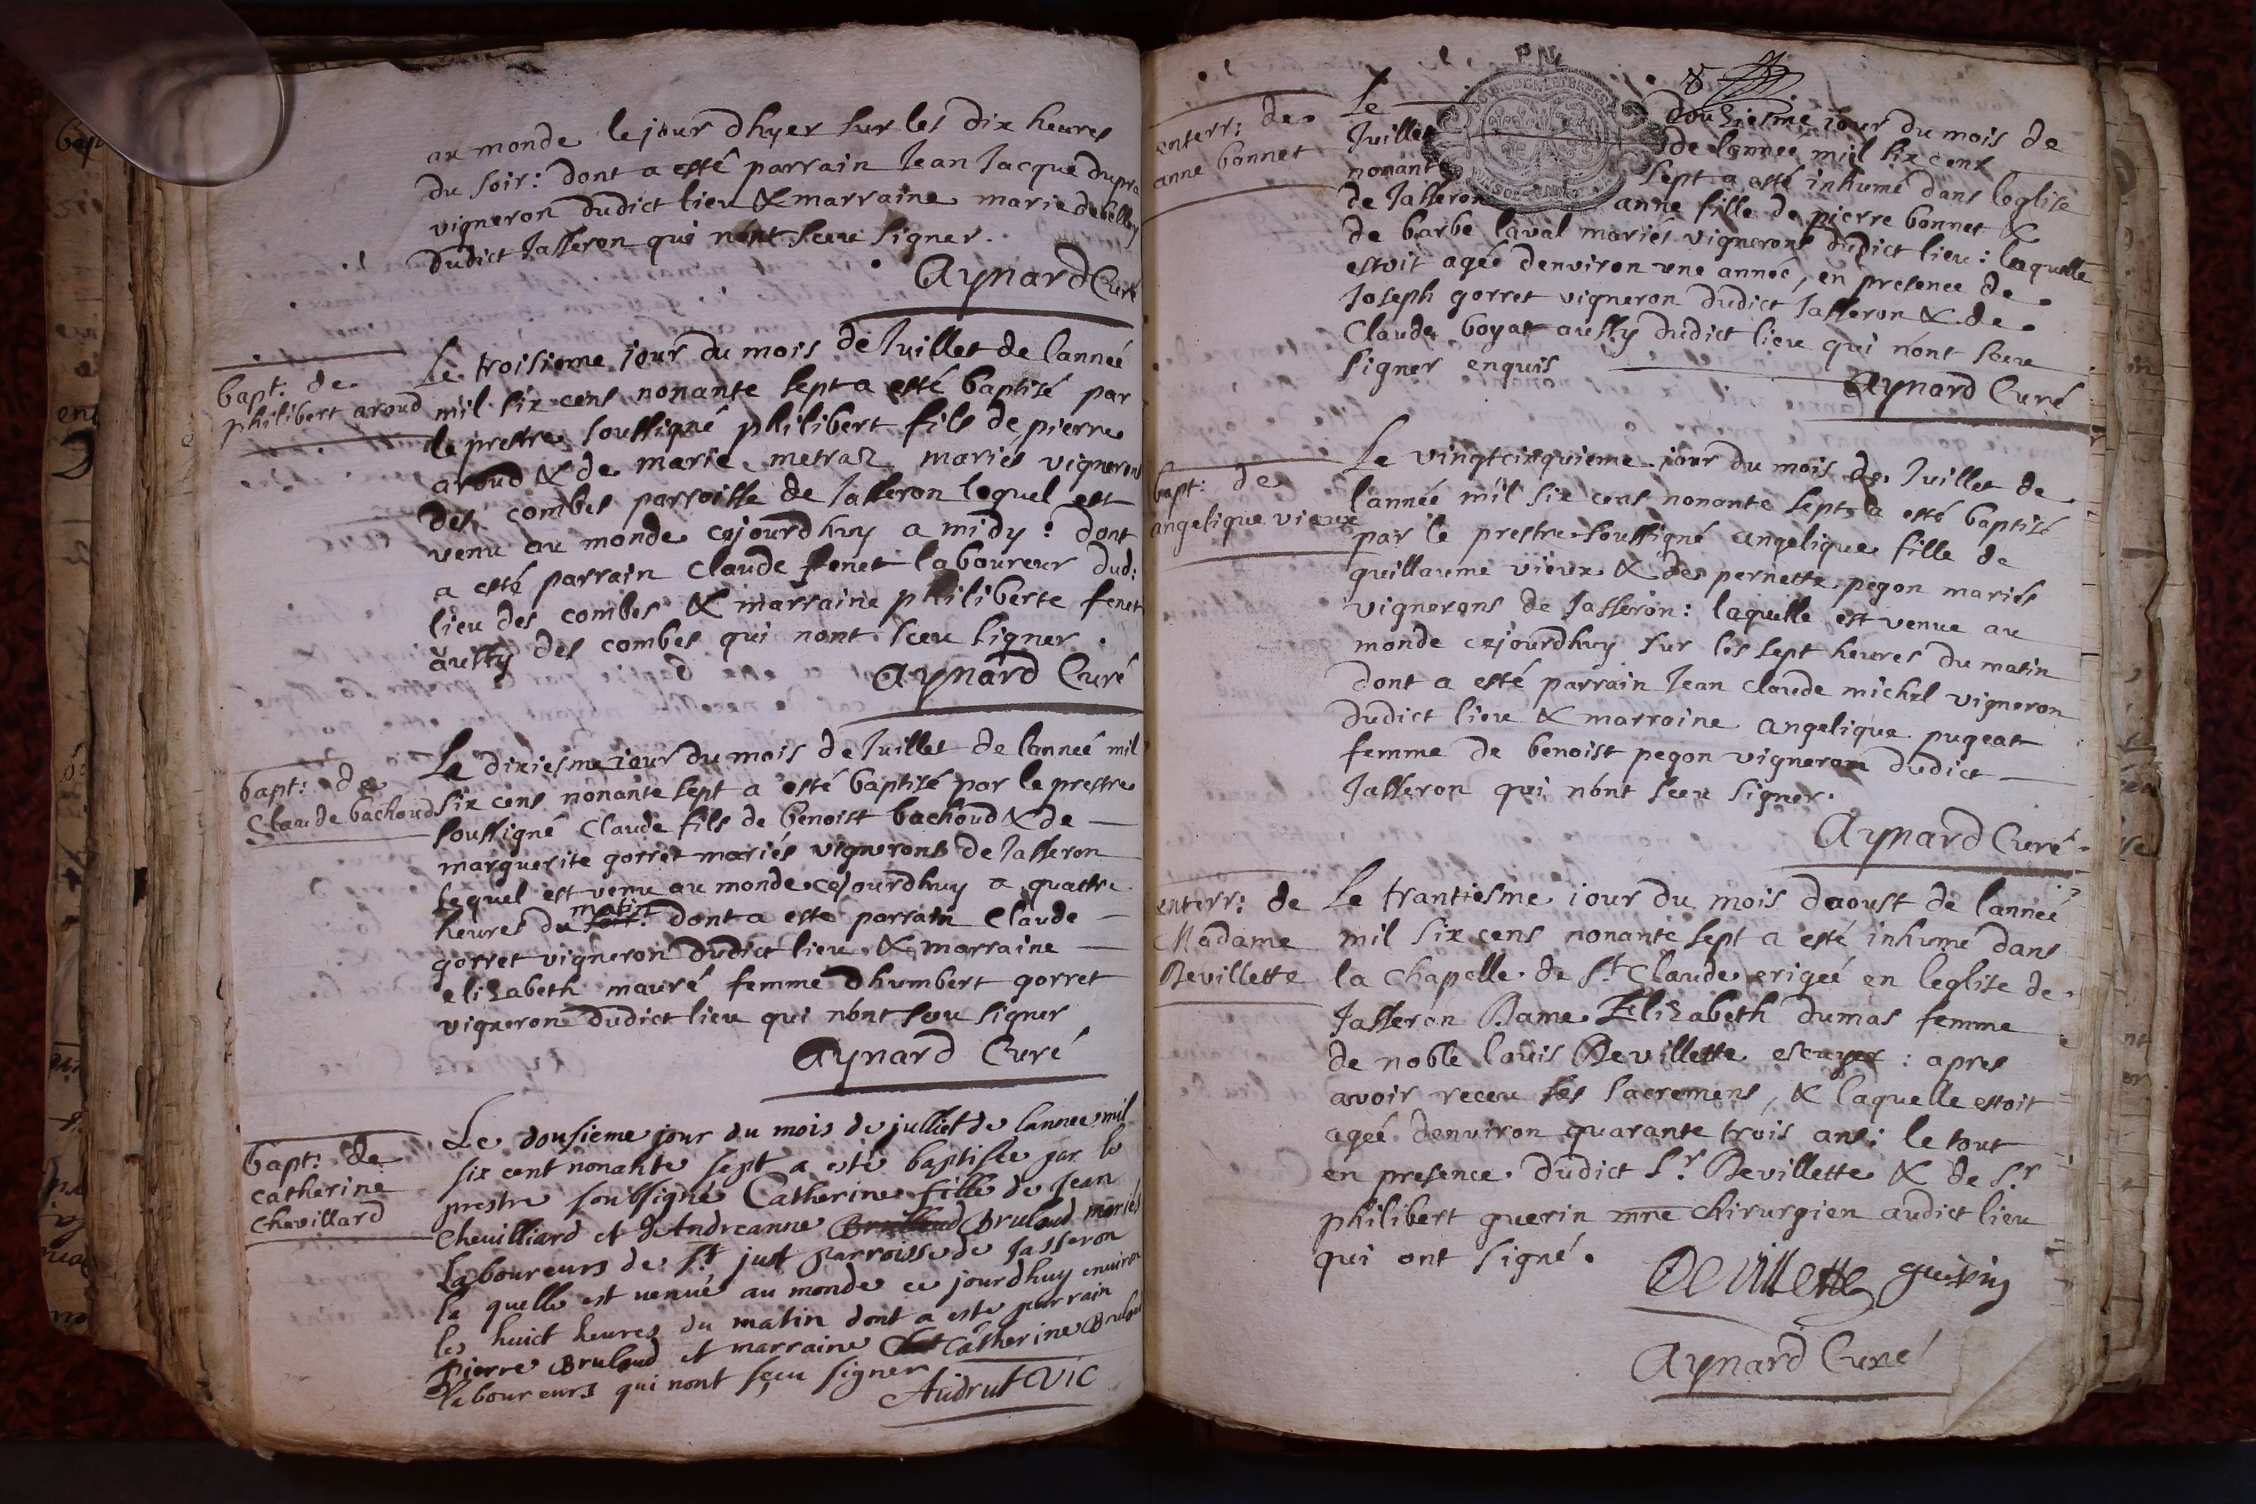 au monde le jour dhyer sur les dix heures
du soir: dont a esté parrain Jean Jacque dupra
vigneron dudict lieu & marraine marie debelley
dudict Jasseron qui nont sceu signer.
Aynard Curé
bapt: de
philibert aroud
Le troisieme jour du mois de Juillet de lanneé
mil six cens nonante sept a esté baptisé par
le prestre soussigné philibert fils de pierre
aroud & de marie metraz mariés vignerons
des combes parroisse de Jasseron lequel est
venu au monde cejourdhuy a midy: dont
a esté parrain Claude fenet laboureur dud:
lieu des combes & marraine philiberte fenet
aussy des combes qui nont sceu signer.
Aynard Curé
bapt: de
Claude bachoud
Le dixiesme jour du mois de Juillet de lanneé mil
six cens nonante sept a esté baptisé par le prestre
soussigné Claude fils de benoist bachoud & de
marguerite gorret mariés vignerons de Jasseron
lequel est venu au monde cejourdhuy a quattre
heures du soir matin dont a esté parrain Claude
gorret vigneron dudict lieu & marraine
elizabeth mauré femme dhumbert gorret
vigneron dudict lieu qui nont sceu signer
Aynard Curé
bapt: de
catherine
Chevillard
Le dousieme jour du mois de julliet de lannee mil
six cent nonante sept a esté baptisée par le
prestre soubsigné Catherine fille de Jean
Cheuilliard et d Andreanne Brulaud mariés
Laboureurs de St just parroisse de Jasseron
la quelle est venuë au monde ce jourdhuy enuiron
les huict heures du matin dont a este parrain
pierre Brulaud et marraine Catherine Brulaud
laboureurs qui nont sçeu signer
Audrut Vic
P.N.
enterr: de
anne bonnet
Le dousiesme jour du mois de
Juillet de lannee mil six cens
nonante sept a esté inhumé dans leglise
de Jasseron anne fille de pierre bonnet &
de barbe laval mariés vignerons dudict lieu: laquelle
estoit ageé denviron une anneé, en presence de
Joseph gorret vigneron dudict Jasseron & de
Claude boyat aussy dudict lieu qui nont sceu
signer enquis
Aynard Curé
bapt: de
angelique vieux
Le vingtcinquieme jour du mois de Juillet de
lannéé mil six cens nonante sept a esté baptisé
par le prestre soussigné angelique fille de
guillaume vieux & de pernette pegon mariés
vignerons de Jasseron: laquelle est venue au
monde cejourdhuy sur les sept heures du matin
dont a esté parrain Jean Claude michel vigneron
dudict lieu & marraine angelique pugeat
femme de benoist pegon vigneron dudict
Jasseron qui nont sceu signer.
Aynard Curé
enterr: de
Madame
Devillette
Le trantiesme jour du mois daoust de lanneé
mil six cens nonante sept a esté inhumé dans
la chapelle de St Claude erigeé en leglise de
Jasseron Dame Elizabeth dumas femme
de noble louis Devillette escuyer: apres
avoir receu ses sacremens, & laquelle estoit
ageé denviron quarante trois ans: le tout
en presence dudict Sr Devillette & de Sr
philibert guerin mre chirurgien audict lieu
qui ont signé.
Devillette guerin
Aynard Curé